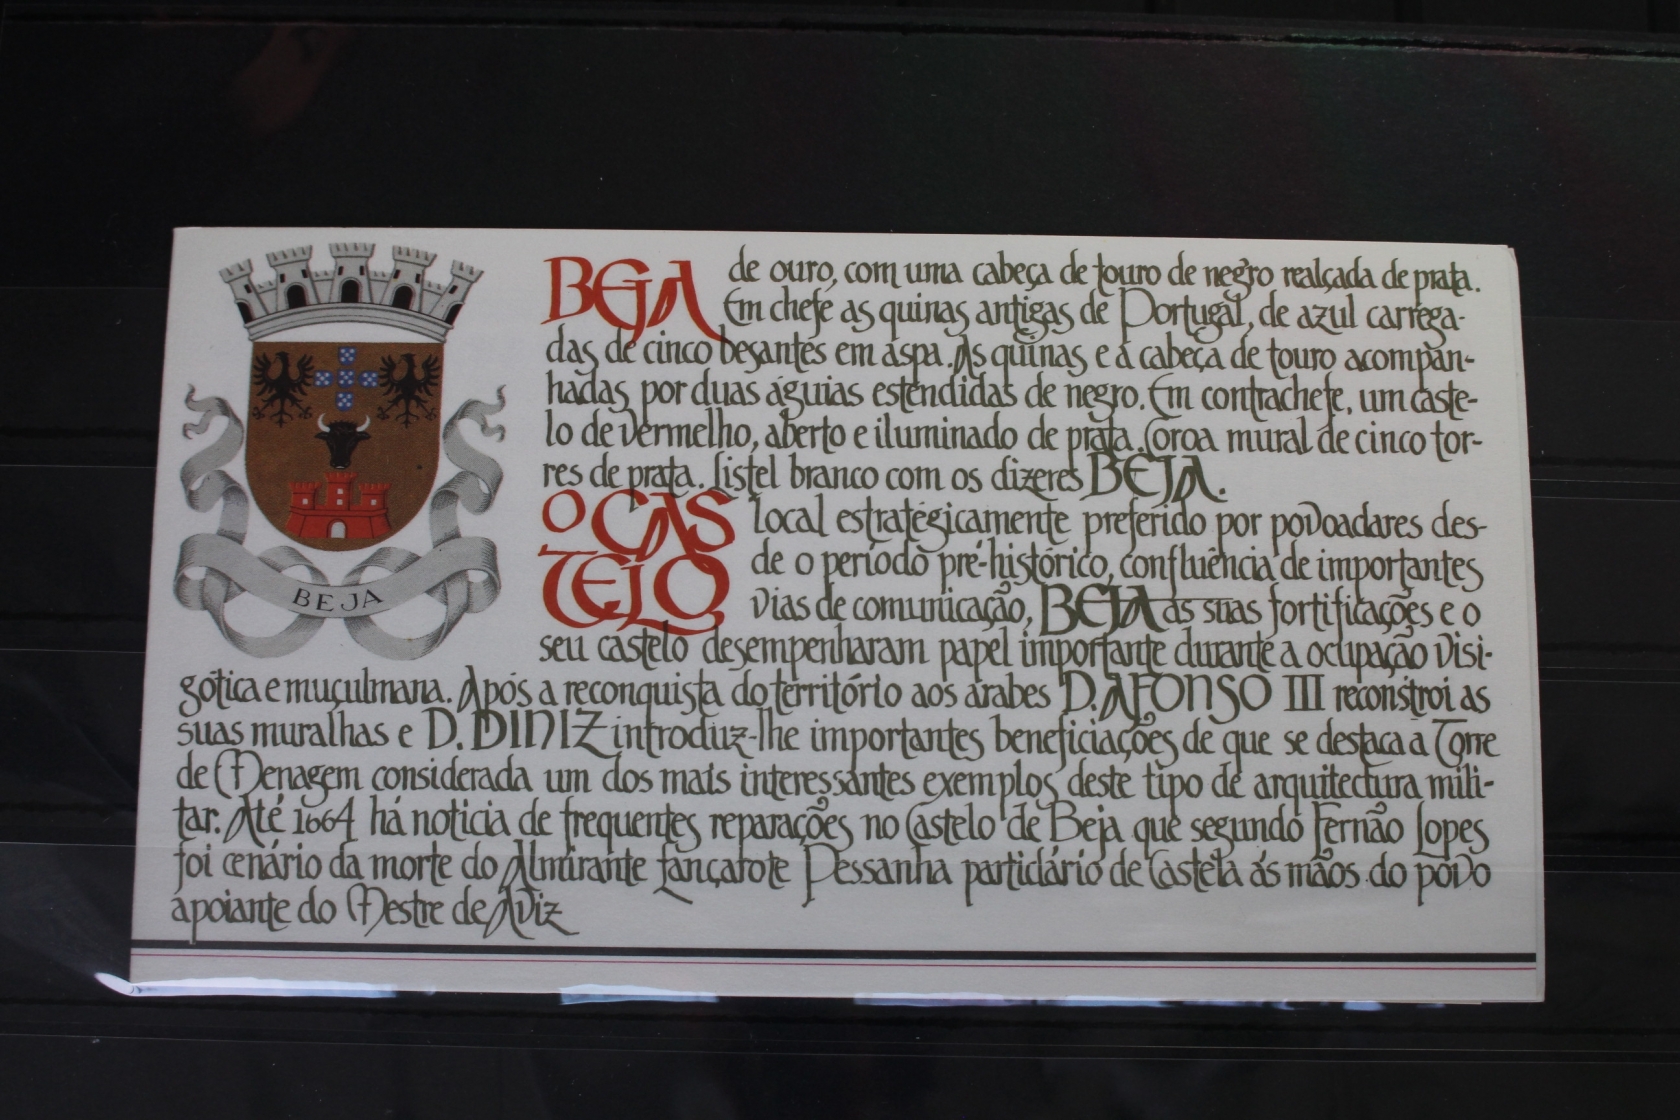 BEJA de ouro, com uma cabeça de touro de negro realçada de prata.
Em chefe as quinas antigas de Portugal, de azul carrega-
das de cinco besantes em aspa. As quinas e a cabeça de touro acompan-
hadas por duas águias estendidas de negro. Em contrachefe, um caste-
lo de vermelho, aberto e iluminado de prata. Coroa mural de cinco tor-
res de prata. Listel branco com os dizeres BEJA.
O CAS
TELO
local estratégicamente preferido por povoadares des-
de o período pré-histórico, confluência de importantes
vias de comunicação, BEJA as suas fortificações e o
seu castelo desempenharam papel importante durante a ocupação visi-
gótica e muçulmana. Após a reconquista do território aos arabes D. AFONSO III reconstroi as
suas muralhas e D. DINIZ introduz-lhe importantes beneficiações de que se destaca a Torre
de Menagem considerada um dos mais interessantes exemplos deste tipo de arquitectura mili-
tar. Até 1664 há noticia de frequentes reparações no Castelo de Beja que segundo Fernão Lopes
foi cenário da morte do Almirante Lançarote Pessanha particlário de Castela ás mãos do povo
apoiante do Mestre de Aviz
BEJA